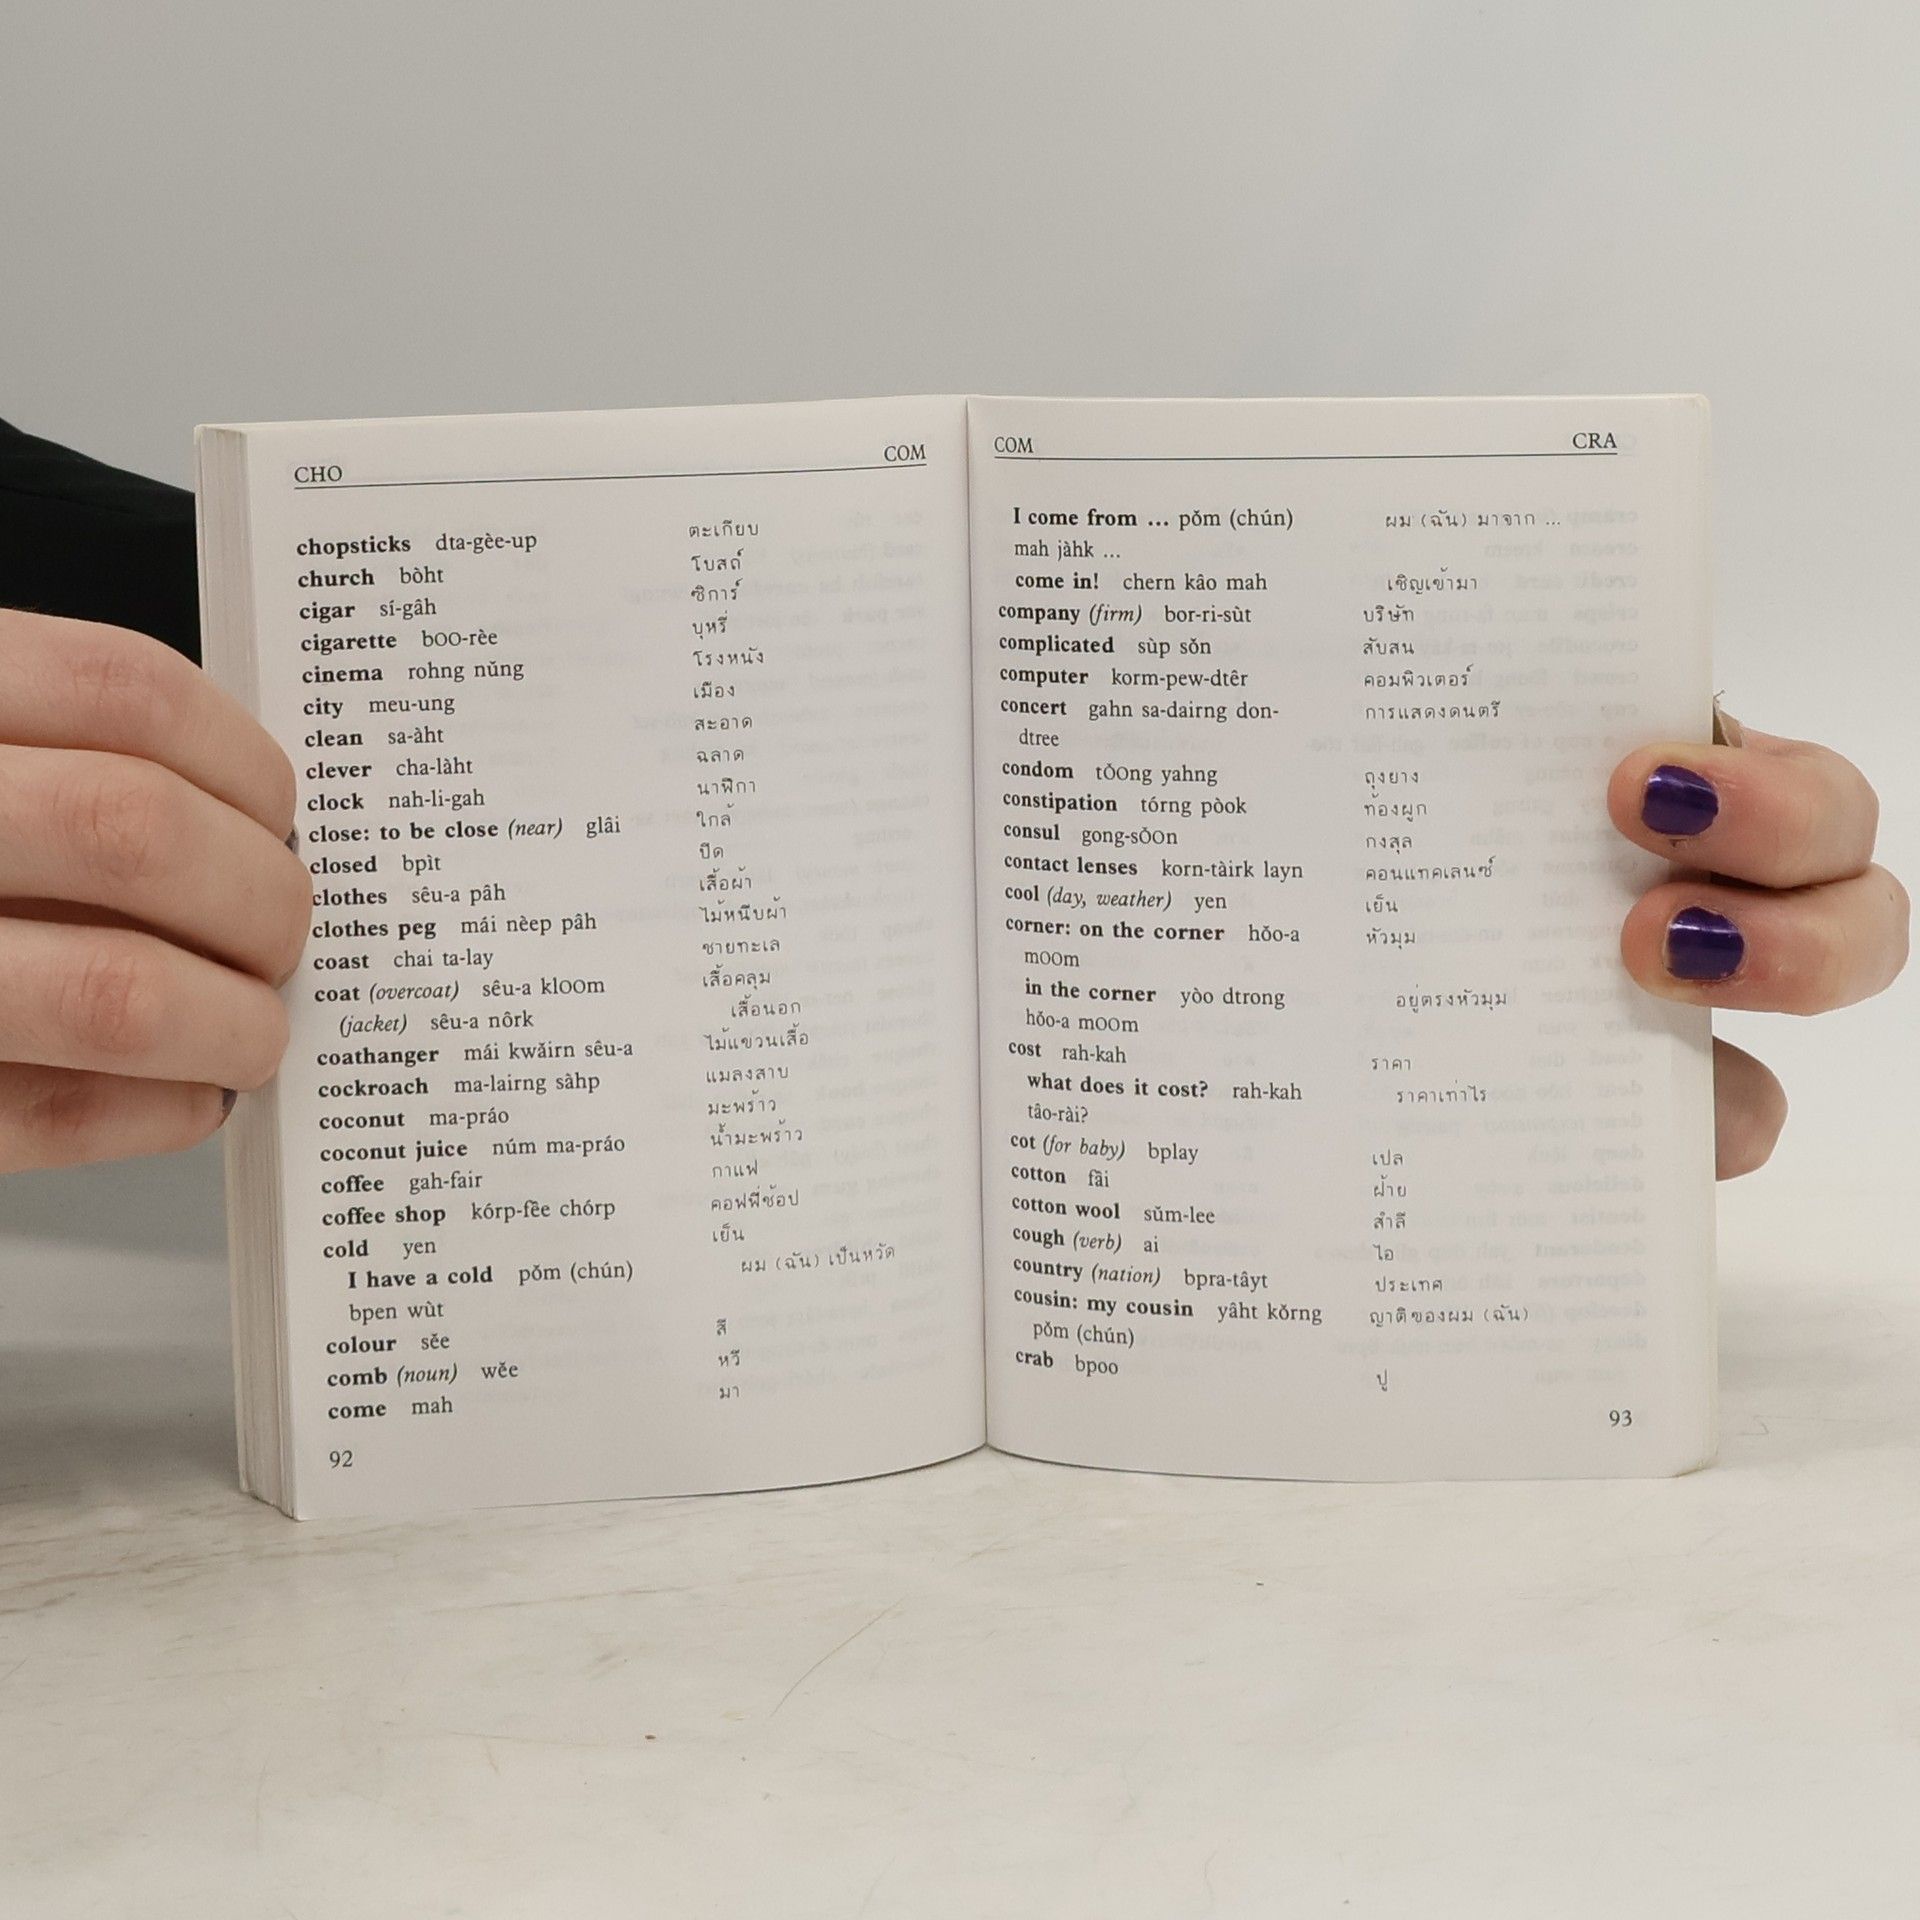 CHO COM
chopsticks dta-gèe-up ตะเกียบ
church bòht โบสถ์
cigar sí-gâh ซิการ์
cigarette bOO-rèe บุหรี่
cinema rohng nŭng โรงหนัง
city meu-ung เมือง
clean sa-àht สะอาด
clever cha-làht ฉลาด
clock nah-li-gah นาฬิกา
close: to be close (near) glâi ใกล้
closed bpìt ปิด
clothes sêu-a pâh เสื้อผ้า
clothes peg mái nèep pâh ไม้หนีบผ้า
coast chai ta-lay ชายทะเล
coat (overcoat) sêu-a klOOm เสื้อคลุม
(jacket) sêu-a nôrk เสื้อนอก
coathanger mái kwăirn sêu-a ไม้แขวนเสื้อ
cockroach ma-lairng sàhp แมลงสาบ
coconut ma-práo มะพร้าว
coconut juice núm ma-práo น้ำมะพร้าว
coffee gah-fair กาแฟ
coffee shop kórp-fêe chórp คอฟฟี่ช้อป
cold yen เย็น
I have a cold pŏm (chún) ผม (ฉัน) เป็นหวัด
bpen wùt
colour sěe สี
comb (noun) wěe หวี
come mah มา
92
COM CRA
I come from ... pŏm (chún) ผม (ฉัน) มาจาก ...
mah jàhk ...
come in! chern kâo mah เชิญเข้ามา
company (firm) bor-ri-sùt บริษัท
complicated sùp sŏn สับสน
computer korm-pew-dtêr คอมพิวเตอร์
concert gahn sa-dairng don- การแสดงดนตรี
dtree
condom tŎOng yahng ถุงยาง
constipation tórng pòok ท้องผูก
consul gong-sŎOn กงสุล
contact lenses korn-tàirk layn คอนแทคเลนซ์
cool (day, weather) yen เย็น
corner: on the corner hŏo-a หัวมุม
mOOm
in the corner yòo dtrong อยู่ตรงหัวมุม
hŏo-a mOOm
cost rah-kah ราคา
what does it cost? rah-kah ราคาเท่าไร
tâo-rài?
cot (for baby) bplay เปล
cotton fâi ฝ้าย
cotton wool sŭm-lee สำลี
cough (verb) ai ไอ
country (nation) bpra-tâyt ประเทศ
cousin: my cousin yâht kŏrng ญาติของผม (ฉัน)
pŏm (chún)
crab bpoo ปู
93